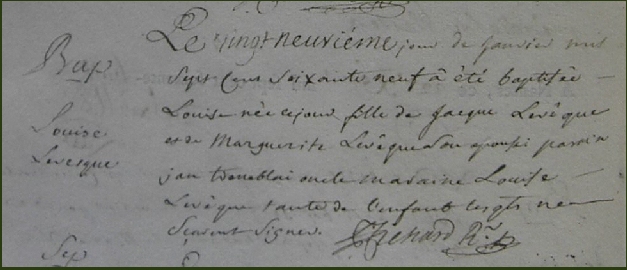 Le vingt neuviéme jour de janvier mil
Bap
Sept Cens Soixante neuf à été baptisée
Louise née ce jour fille de Jacque Levêque
Louise
et de Marguerite Levêque Son epouse parain
Levesque
jan oncle maraine Louise
Levêque tante de l'enfant lesqls ne
Scavent Signer
Sep